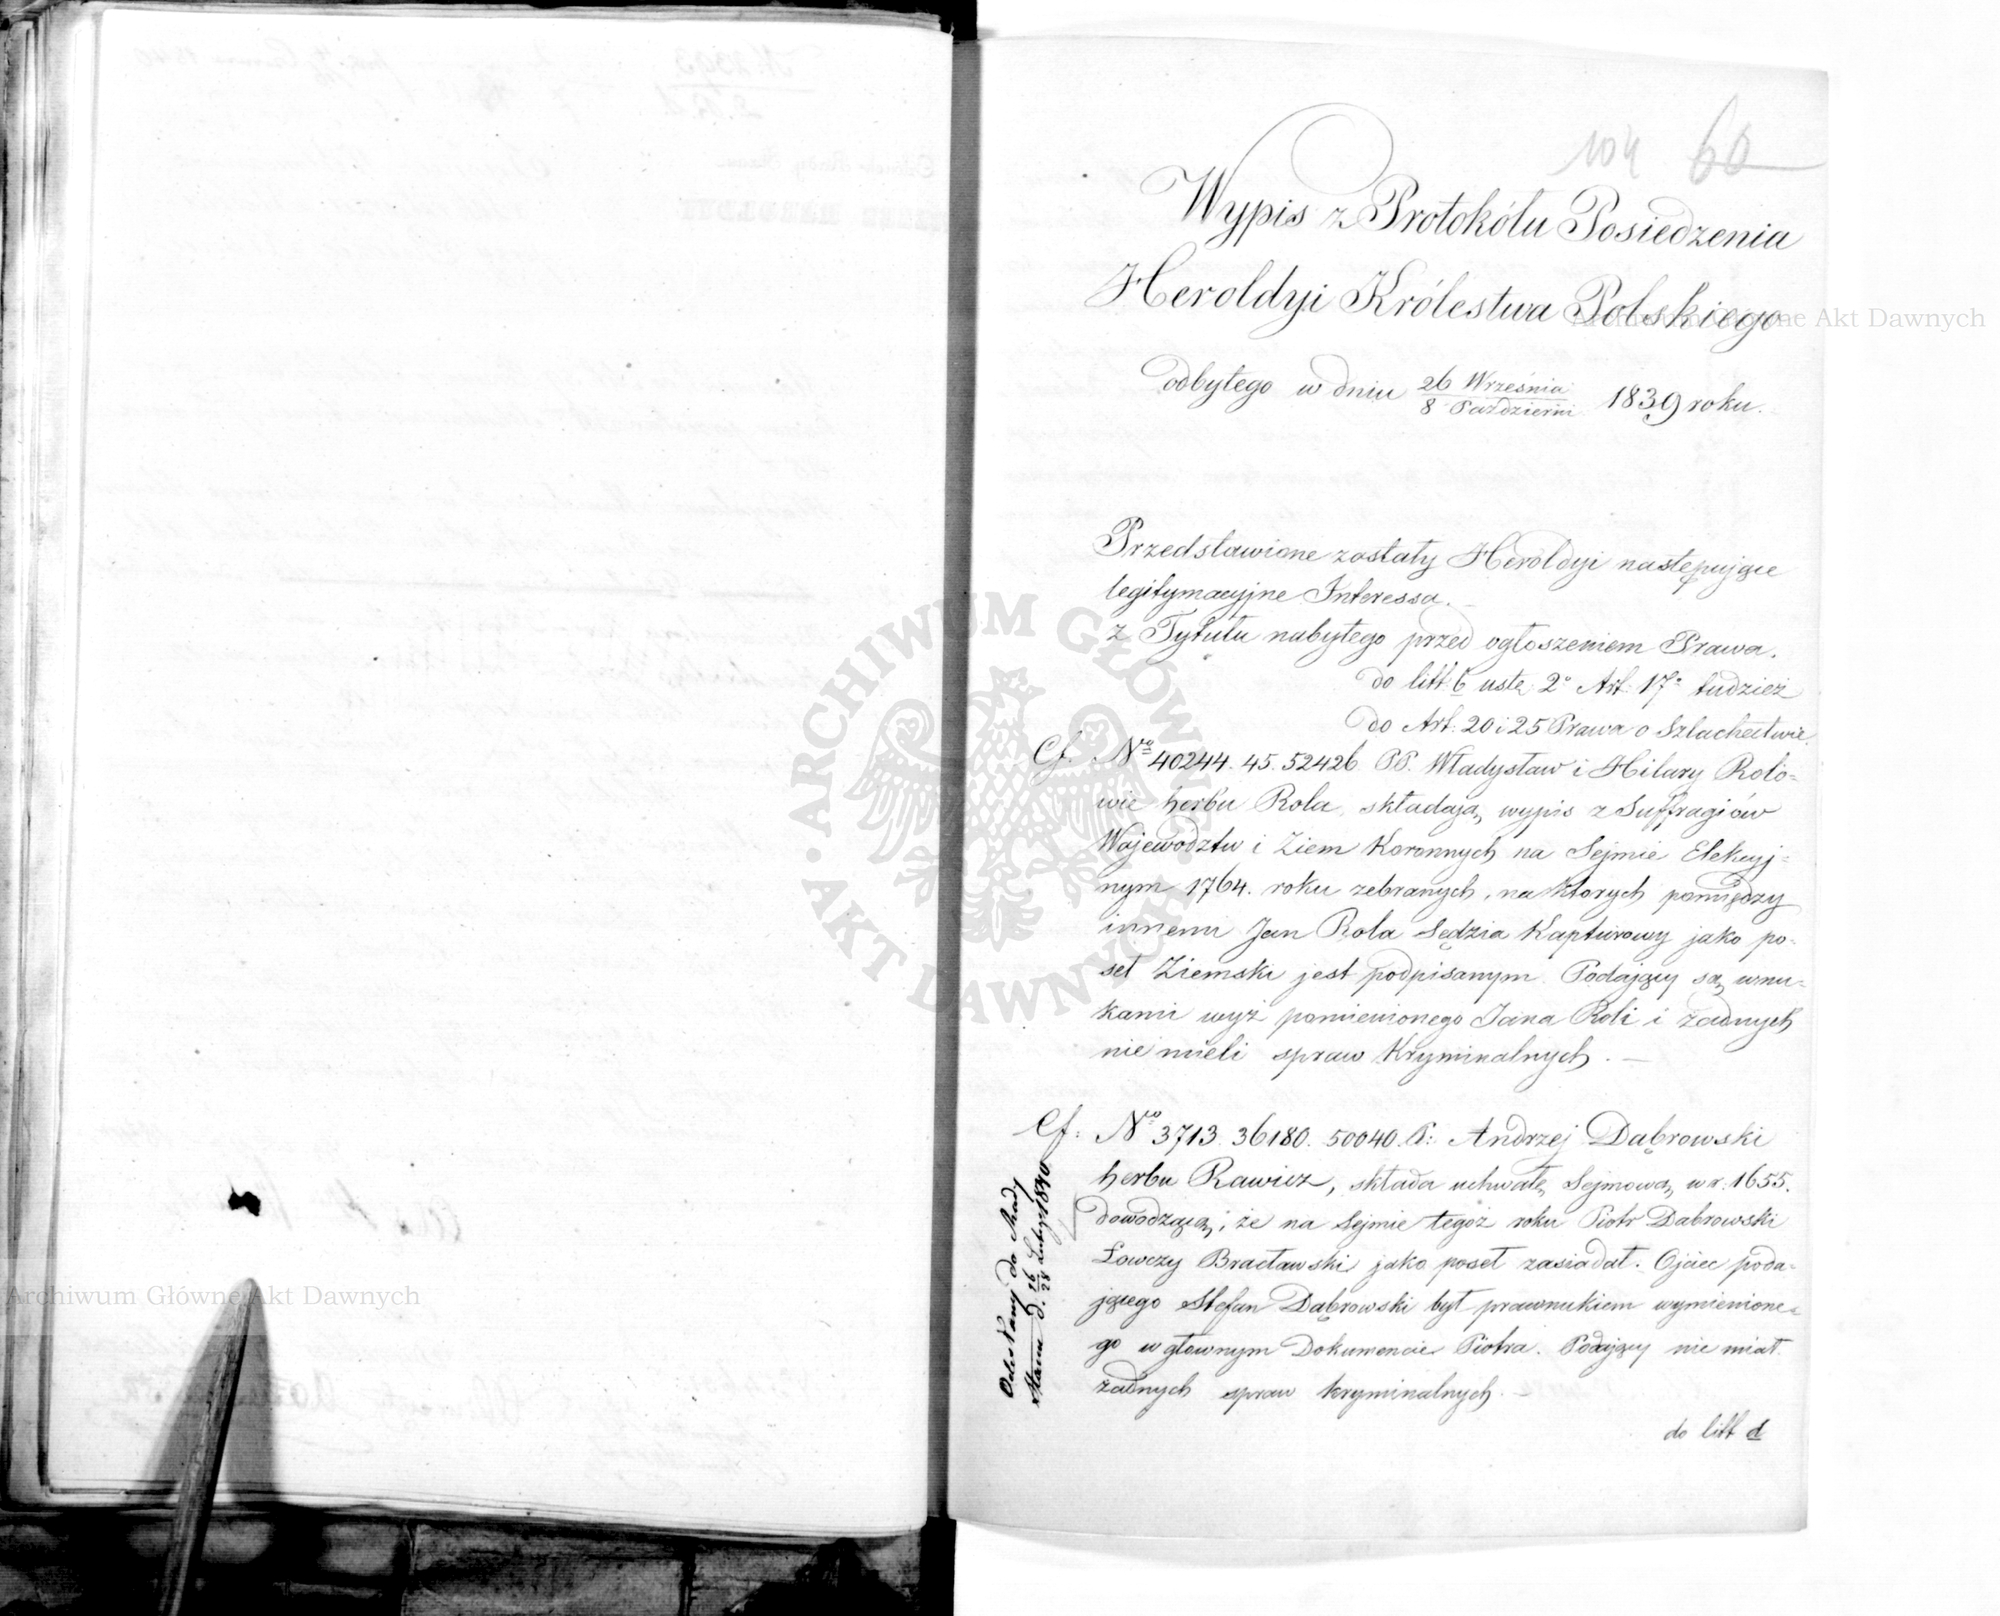 104 60
Wypis z Protokółu Posiedzenia
Heroldyi Królestwa Polskiego
odbytego w dniu 26 Września / 8 Październi 1839 roku.
Przedstawione zostały Heroldyi następujące
legitymacyjne Interessa.
z Tytułu nabytego przed ogłoszeniem Prawa.
do litt: b ustę: 2° Art: 17° tudzież
do Art: 20 i 25 Prawa o Szlachectwie.
Cf. Nro 40244. 45. 52426. PP. Władysław i Hilary Rolo-
wie herbu Rola, składają wypis z Suffragiów
Województw i Ziem Koronnych na Sejmie Elekcyj-
nym 1764. roku zebranych, na ktorych pomiędzy
innemi Jan Rola Sędzia Kapturowy jako po-
seł Ziemski jest podpisanym. Podający są wnu-
kami wyż pomienionego Jana Roli i żadnych
nie mieli spraw Kryminalnych. —
Cf: Nro 3713. 36180. 50040. P: Andrzej Dąbrowski
herbu Rawicz, składa uchwałę Sejmową w r: 1655.
dowodzącą, że na Sejmie tegoż roku Piotr Dąbrowski
Łowczy Bracławski jako poseł zasiadał. Ojciec poda-
jącego Stefan Dąbrowski był prawnukiem wymienione-
go w głownym Dokumencie Piotra. Podający nie miał
żadnych spraw kryminalnych. —
do litt d
Odesłany do Rady
Stanu d. 16/28 Lutego 1840
Archiwum Główne Akt Dawnych
Archiwum Główne Akt Dawnych
· ARCHIWUM GŁÓWNE · AKT DAWNYCH